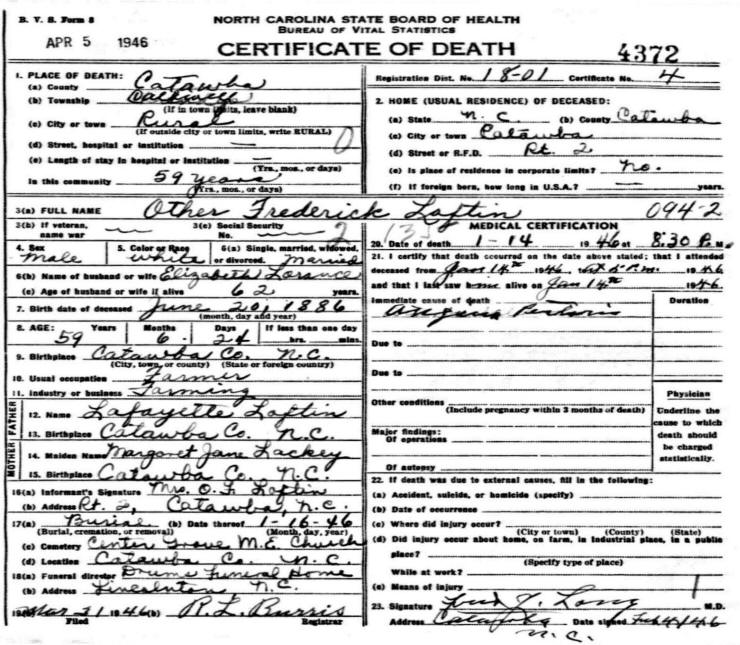 B. V. S. Form 8
NORTH CAROLINA STATE BOARD OF HEALTH
BUREAU OF VITAL STATISTICS
APR 5 1946
CERTIFICATE OF DEATH
4372
Registration Dist. No. 18-01 Certificate No. 4
1. PLACE OF DEATH:
(a) County Catawba
(b) Township Caldwell
(If in town limits, leave blank)
(c) City or town Rural
(If outside city or town limits, write RURAL)
(d) Street, hospital or institution —
(e) Length of stay in hospital or institution —
(Yrs., mos., or days)
In this community 59 years
(Yrs., mos., or days)
2. HOME (USUAL RESIDENCE) OF DECEASED:
(a) State N. C. (b) County Catawba
(c) City or town Catawba
(d) Street or R.F.D. Rt. 2
(e) Is place of residence in corporate limits? No.
(f) If foreign born, how long in U.S.A.? — years.
3(a) FULL NAME Other Frederick Loftin 094-2
3(b) If veteran, name war
3(c) Social Security No.
4. Sex Male
5. Color or Race White
6(a) Single, married, widowed, or divorced. Married
6(b) Name of husband or wife Elizabeth Lorance
(c) Age of husband or wife if alive 62 years.
7. Birth date of deceased June 20, 1886
(month, day and year)
8. AGE: Years Months Days If less than one day
59 6 24 hrs. mins.
9. Birthplace Catawba Co. N.C.
(City, town, or county) (State or foreign country)
10. Usual occupation Farmer
11. Industry or business Farming
FATHER
12. Name Lafayette Loftin
13. Birthplace Catawba Co. N.C.
MOTHER
14. Maiden Name Margaret Jane Lackey
15. Birthplace Catawba Co. N.C.
16(a) Informant's Signature Mrs. O. F. Loftin
(b) Address Rt. 2, Catawba, N.C.
17(a) Burial (b) Date thereof 1-16-46
(Burial, cremation, or removal) (Month, day, year)
(c) Cemetery Center Grove M.E. Church
(d) Location Catawba Co. N.C.
18(a) Funeral director Drums Funeral Home
(b) Address Lincolnton, N.C.
19(a) Mar 21 1946 (b) R. L. Burris
Filed Registrar
MEDICAL CERTIFICATION
20. Date of death 1-14 1946 at 8:30 P.M.
21. I certify that death occurred on the date above stated; that I attended
deceased from Jan 14th 1946, 1946
and that I last saw alive on Jan 14th 1946
Immediate cause of death Duration
Angina Pectoris
Due to
Due to
Other conditions
(Include pregnancy within 3 months of death)
Major findings:
Of operations
Of autopsy
Physician
Underline the cause to which death should be charged statistically.
22. If death was due to external causes, fill in the following:
(a) Accident, suicide, or homicide (specify)
(b) Date of occurrence
(c) Where did injury occur?
(City or town) (County) (State)
(d) Did injury occur about home, on farm, in industrial place, in a public place?
(Specify type of place)
While at work?
(e) Means of injury
23. Signature Fred Y. Long M.D.
Address Catawba Date signed Feb 4/46
N.C.